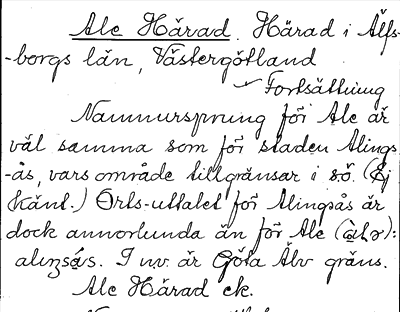 Ale Härad. Härad i Älfs-
-borgs län, Västergötland
Fortsättning
Namnursprung för Ale är
väl samma som för staden Alings-
-ås, vars område tillgränsar i sö. (Ej
känt.) Orts-uttalet för Alingsås är
dock annorlunda än för Ale
alıŋsås. I nv. är Göta Älv gräns.
Ale Härad ck.